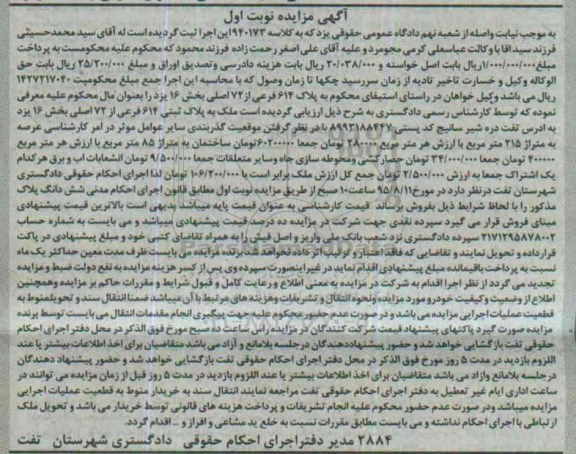 آگهی مزایده نوبت اول
به موجب نیابت واصله از شعبه نهم دادگاه عمومی حقوقی یزد که به کلاسه ۹۴۰۱۷۳ این اجرا ثبت گردیده است له آقای سید محمدحسینی
فرزند سید اقا با وکالت عباسعلی کرمی مجومرد و علیه آقای علی اصغر رحمت زاده فرزند محمود که محکوم علیه محکومست به پرداخت
مبلغ ۱/۰۰۰/۰۰۰/۰۰۰ ریال بابت اصل خواسته و ۲۰/۰۳۸/۰۰۰ ریال بابت هزینه دادرسی وتصدیق اوراق و مبلغ ۲۵/۲۰۰/۰۰۰ ریال بابت حق
الوکاله وکیل و خسارت تاخیر تادیه از زمان سررسید چکها تا زمان وصول که با محاسبه این اجرا جمع مبلغ محکومیت ۱۴۲۷۲۱۷۰۴۰
ریال می باشد وکیل خواهان در راستای استیفای محکوم به پلاک ۶۱۴ فرعی از ۷۲ اصلی بخش ۱۶ یزد را بعنوان مال محکوم علیه معرفی
نموده که توسط کارشناس رسمی دادگستری به شرح ذیل ارزیابی گردیده است ملک به پلاک ثبتی ۶۱۴ فرعی از ۷۲ اصلی بخش ۱۶ یزد
به ادرس تفت دره شیر سانیج کد پستی با در نظر گرفتن موقعیت گذربندی سایر عوامل موثر در امر کارشناسی عرصه
به متراژ ۲۱۵ متر مربع با ارزش هر متر مربع تومان جمعا ۶۰۲۰۰۰۰۰ تومان ساختمان به متراژ ۸۵ متر مربع با ارزش هر متر مربع
۴۰۰۰۰۰ تومان جمعا ۳۴/۰۰۰/۰۰۰ تومان حصارکشی ومحوطه سازی چاه وسایر متعلقات جمعا ۹/۵۰۰/۰۰۰ تومان انشعابات اب و برق هرکدام
یک اشتراک جمعا به ارزش ۲/۵۰۰/۰۰۰ تومان جمع کل ارزش ملک برابر است با ۱۰۶/۲۰۰/۰۰۰ تومان لذا اجرای احکام حقوقی دادگستری
شهرستان تفت درنظر دارد در مورخ ۹۵/۸/۱۱ ساعت ۱۰ صبح از طریق مزایده نوبت اول مطابق قانون اجرای احکام مدنی شش دانگ پلاک
مذکور را با لحاظ شرایط ذیل بفروش برساند قیمت کارشناسی به عنوان قیمت پایه میباشد بدیهی است بالاترین قیمت پیشنهادی
مبنای فروش قرار می گیرد سپرده نقدی جهت شرکت در مزایده ده درصد قیمت پیشنهادی میباشد و می بایست به شماره حساب
۲۱۷۱۲۹۵۸۷۸۰۰۲ سپرده دادگستری نزد شعب بانک ملی واریز و اصل فیش را به همراه تقاضای کتبی خود و مبلغ پیشنهادی در پاکت
قرارداده و تحویل نمایند و تقاضایی که فاقد اعتبار و ترتیب اثر داده نخواهد شد برنده مزایده می بایست ظرف مدت معین حداکثر یک ماه
نسبت به پرداخت باقیمانده مبلغ پیشنهادی اقدام نماید در غیر اینصورت سپرده وی پس از کسر هزینه مزایده به نفع دولت ضبط و مزایده
تجدید می گردد از نظر اجرا اقدام به شرکت در مزایده به معنی اطلاع و رعایت کامل و قبول شرایط و مقررات حاکم بر مزایده وهمچنین
اطلاع از وضعیت وکیفیت خودرو مورد مزایده ونحوه انتقال و تشریفات وهزینه های مرتبط با آن میباشد ضمنا انتقال سند و تحویل منوط به
قطعیت عملیات اجرایی مزایده می باشد و در صورت عدم حضور محکوم علیه جهت پیگیری انجام مقدمات انتقال می بایست توسط برنده
مزایده صورت گیرد پاکتهای پیشنهاد قیمت شرکت کنندگان در مزایده راس ساعت ۱۰ صبح مورخ فوق الذکر در محل دفتر اجرای احکام
حقوقی تفت بازگشایی خواهد شد و حضور پیشنهاددهندگان درجلسه بلامانع و آزاد می باشد متقاضیان برای اخذ اطلاعات بیشتر یا عند
اللزوم بازدید در مدت ۵ روز مورخ فوق الذکر در محل دفتر اجرای احکام حقوقی تفت بازگشایی خواهد شد و حضور پیشنهاد دهندگان
درجلسه بلامانع وازاد می باشد متقاضیان برای اخذ اطلاعات بیشتر یا عند اللزوم بازدید در مدت ۵ روز قبل از زمان مزایده می توانند در
ساعت اداری ایام غیر تعطیل به دفتر اجرای احکام حقوقی تفت مراجعه نمایند انتقال سند به خریدار منوط به قطعیت عملیات اجرایی
مزایده میباشد ودر صورت عدم حضور محکوم علیه انجام تشریفات و پرداخت هزینه های قانونی توسط خریدار می باشد و تحویل ملک
ارتباطی با اجرای احکام نداشته و می بایست مطابق مقررات نسبت به خلع ید مشاعی و افراز و ... اقدام گردد.
۲۸۸۴ مدیر دفتر اجرای احکام حقوقی دادگستری شهرستان تفت